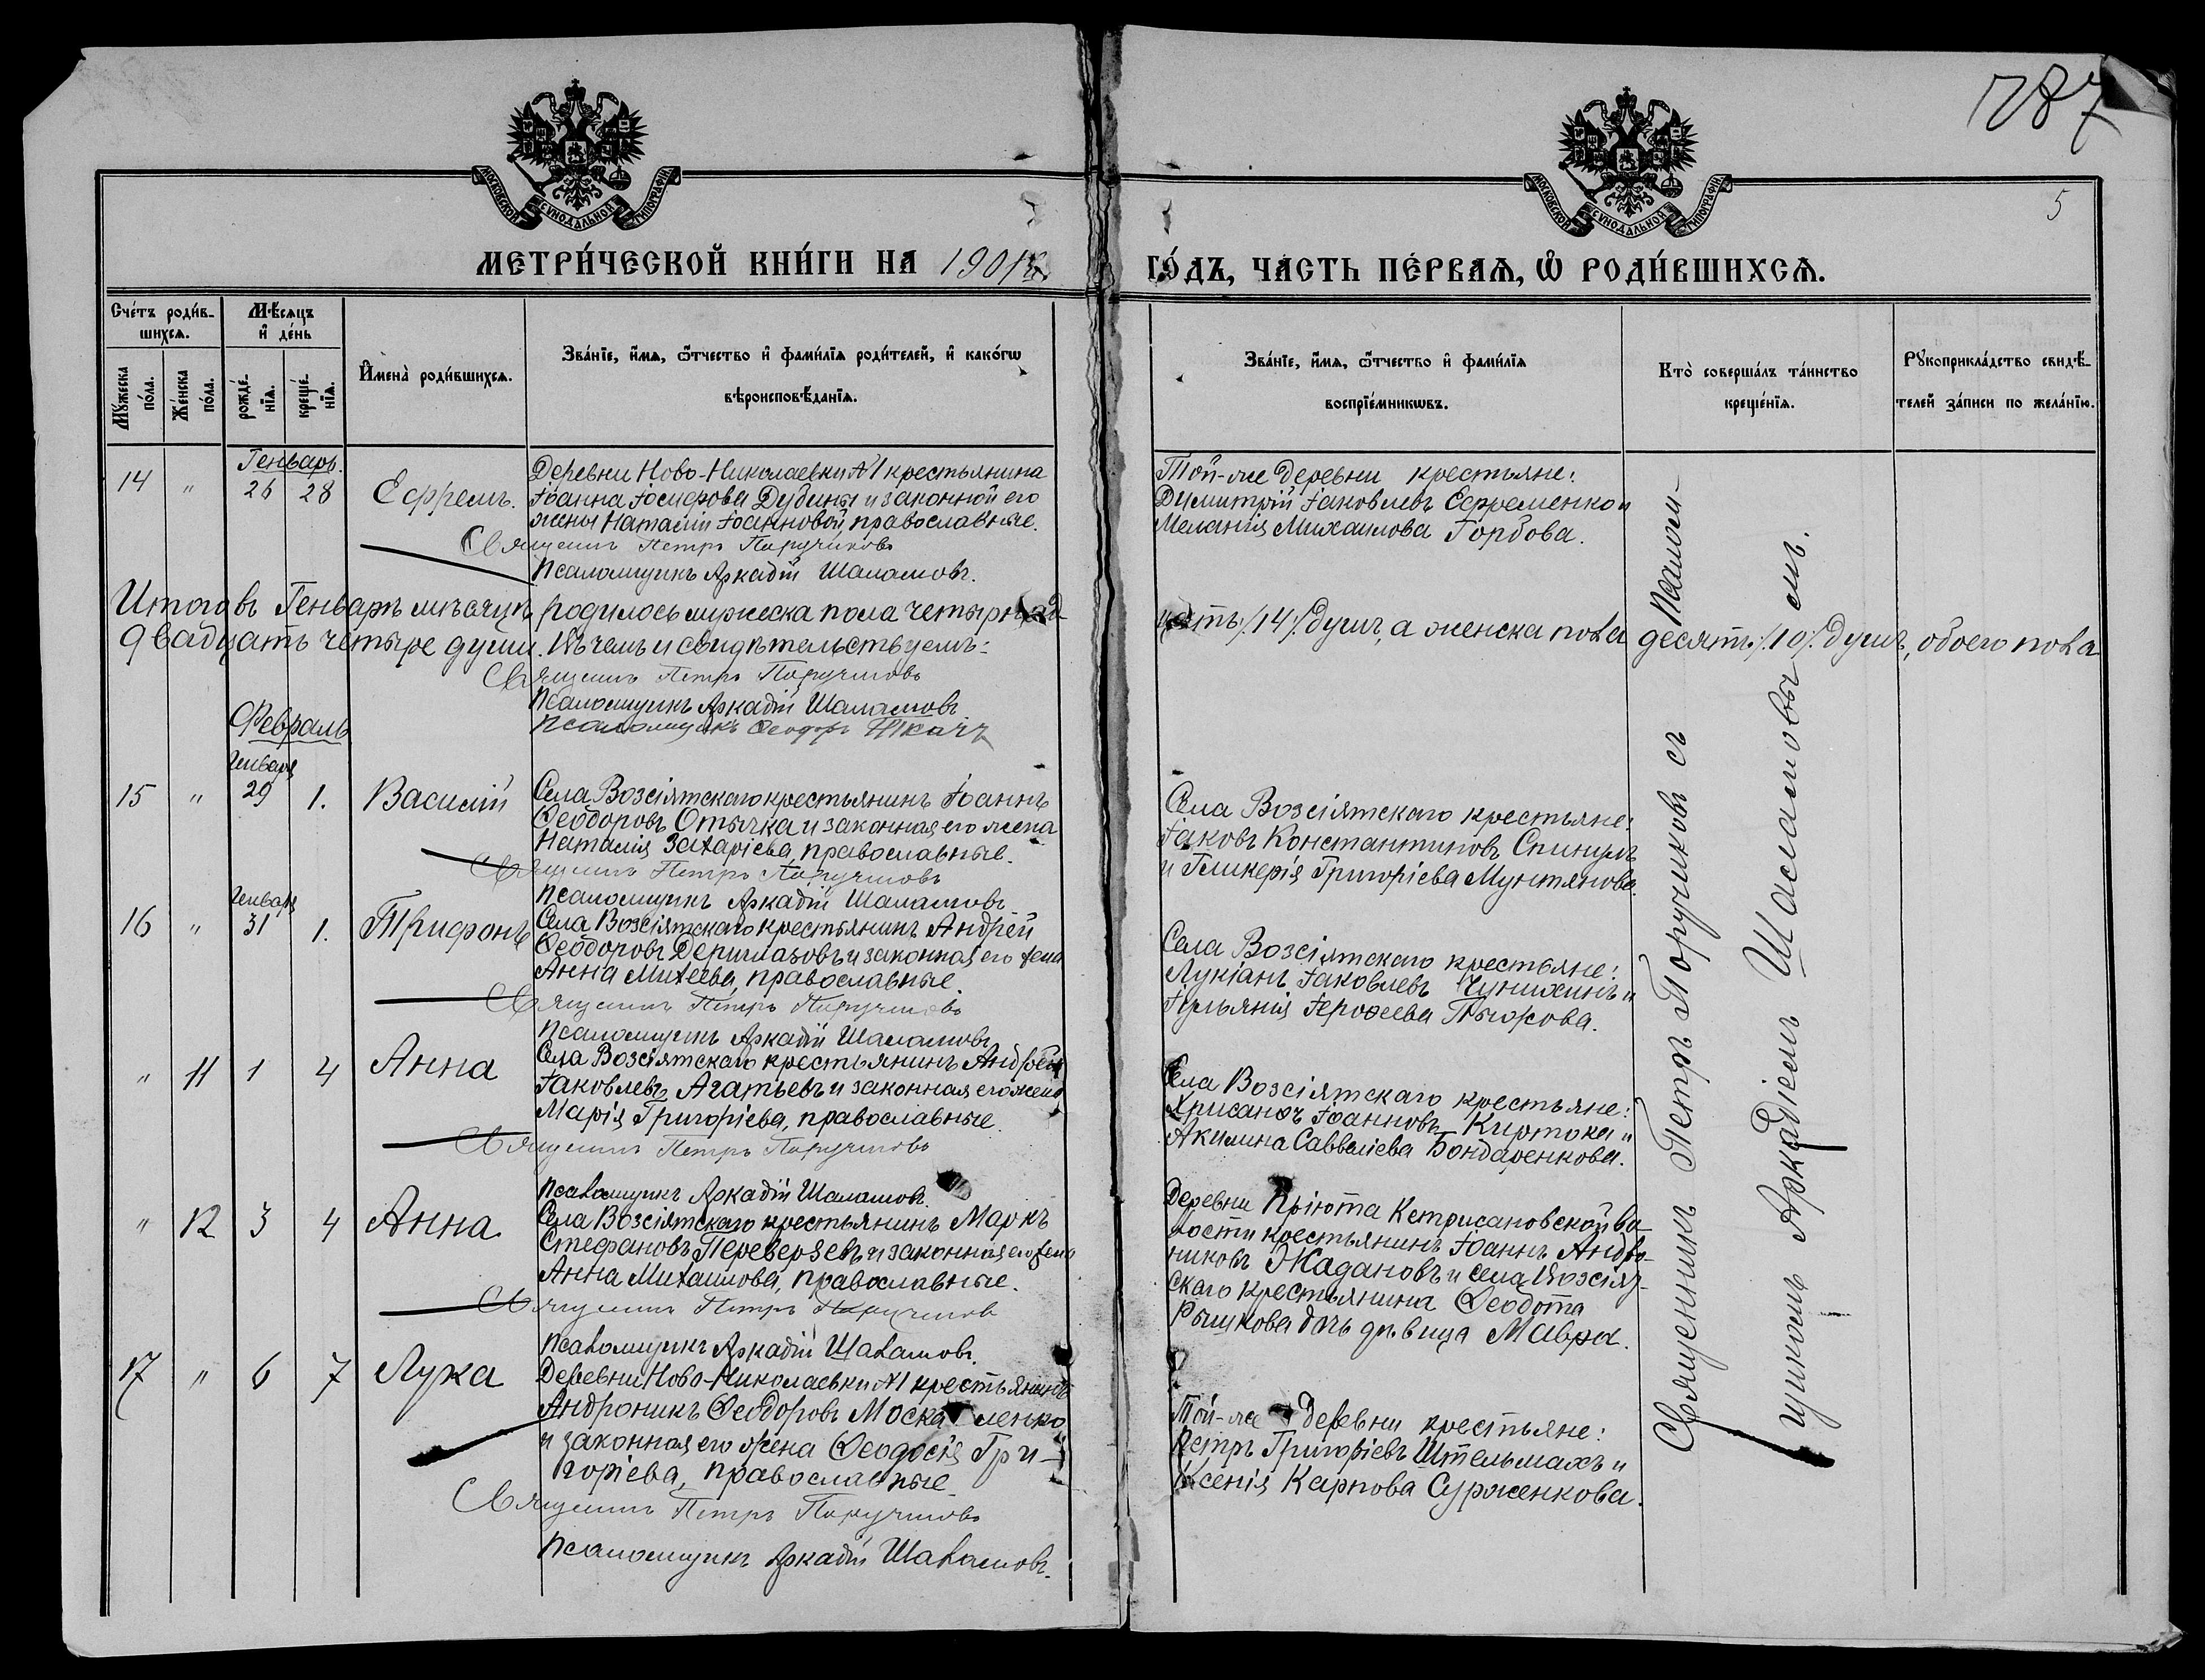 787
5
МОСКОВСКОЙ СѴНОДАЛЬНОЙ ТИПОГРАФІИ
МОСКОВСКОЙ СѴНОДАЛЬНОЙ ТИПОГРАФІИ
МЕТРИ́ЧЕСКОЙ КНИ́ГИ НА 1901
ГО́ДЪ, ЧА́СТЬ ПЕ́РВАѦ, Ѡ РОДИ́ВШИХСѦ.
Сче́тъ роди́в-
шихсѧ.
Мѣ́сѧцъ
и де́нь
Мꙋ́жеска
по́ла.
Же́нска
по́ла.
рожде́-
нїѧ.
креще́-
нїѧ.
И҆мена̀ роди́вшихсѧ.
Зва́нїе, и҆́мѧ, ѻ҆́тчество и҆ фами́лїѧ роди́телей, и҆ како́гѡ
вѣроисповѣ́данїѧ.
Зва́нїе, и҆́мѧ, ѻ҆́тчество и҆ фами́лїѧ
воспрїе́мникѡвъ.
Кто̀ соверша́лъ та́инство
креще́нїѧ.
Рꙋкоприкла́дство свидѣ́-
телей за́писи по жела́нїю.
Генварь.
14 " 26 28 Ефремъ.
Деревни Ново-Николаевки №1 крестьянина
Іоанна Іосифова Дубины и законной его
жены Наталіи Іоанновой, православные.
Священникъ Петръ Поручиковъ
Псаломщикъ Аркадій Шаламовъ.
Той-же деревни крестьяне:
Димитрій Іаковлевъ Ефременко и
Меланія Михаилова Горбова.
Итого въ Генварѣ мѣсяцѣ родилось мужеска пола четырнад-
цать /14/ душъ, а женска пола десять /10/ душъ, обоего пола
двадцать четыре души. Въ чемъ и свидѣтельствуемъ:
Священникъ Петръ Поручиковъ
Псаломщикъ Аркадій Шаламовъ
Псаломщикъ Ѳеодоръ Ткачъ
Февраль
Генваря
15 " 29 1. Василій
Села Возсіятскаго крестьянинъ Іоаннъ
Ѳеодоровъ Отычка и законная его жена
Наталія Захаріева, православные.
Священникъ Петръ Поручиковъ
Псаломщикъ Аркадій Шаламовъ
Села Возсіятскаго крестьяне:
Іаковъ Константиновъ Спинулъ
и Гликерія Григоріева Мунтянова.
Генваря
16 " 31 1. Трифонъ
Села Возсіятскаго крестьянинъ Андрей
Ѳеодоровъ Дериглазовъ и законная его жена
Анна Михеева, православные.
Священникъ Петръ Поручиковъ
Псаломщикъ Аркадій Шаламовъ
Села Возсіятскаго крестьяне:
Лукіанъ Іаковлевъ Чунихинъ и
Іуліанія Іерофеева Пыжова.
" 11 1 4 Анна
Села Возсіятскаго крестьянинъ Андрей
Іаковлевъ Агатьевъ и законная его жена
Марія Григоріева, православные.
Священникъ Петръ Поручиковъ
Псаломщикъ Аркадій Шаламовъ.
Села Возсіятскаго крестьяне:
Хрисанфъ Іоанновъ Киртока и
Акилина Савваіева Бондаренкова.
" 12 3 4 Анна
Села Возсіятскаго крестьянинъ Маркъ
Стефановъ Переверзевъ и законная его жена
Анна Михаилова, православные.
Священникъ Петръ Поручиковъ
Псаломщикъ Аркадій Шаламовъ.
Деревни Пріюта Кетрисановской во-
лости крестьянинъ Іоаннъ Андро-
никовъ Жадановъ и села Возсіят-
скаго крестьянина Ѳеодота
Рышкова дочь дѣвица Мавра.
17 " 6 7 Лука
Деревни Ново-Николаевки №1 крестьянинъ
Андроникъ Ѳеодоровъ Москаленко
и законная его жена Ѳеодосія Гри-
горіева, православные
Священникъ Петръ Поручиковъ
Псаломщикъ Аркадій Шаламовъ.
Той-же деревни крестьяне:
Петръ Григоріевъ Штельмахъ и
Ксенія Карпова Сурженкова.
Священникъ Петръ Поручиковъ съ Псалом-
щикомъ Аркадіемъ Шаламовымъ.